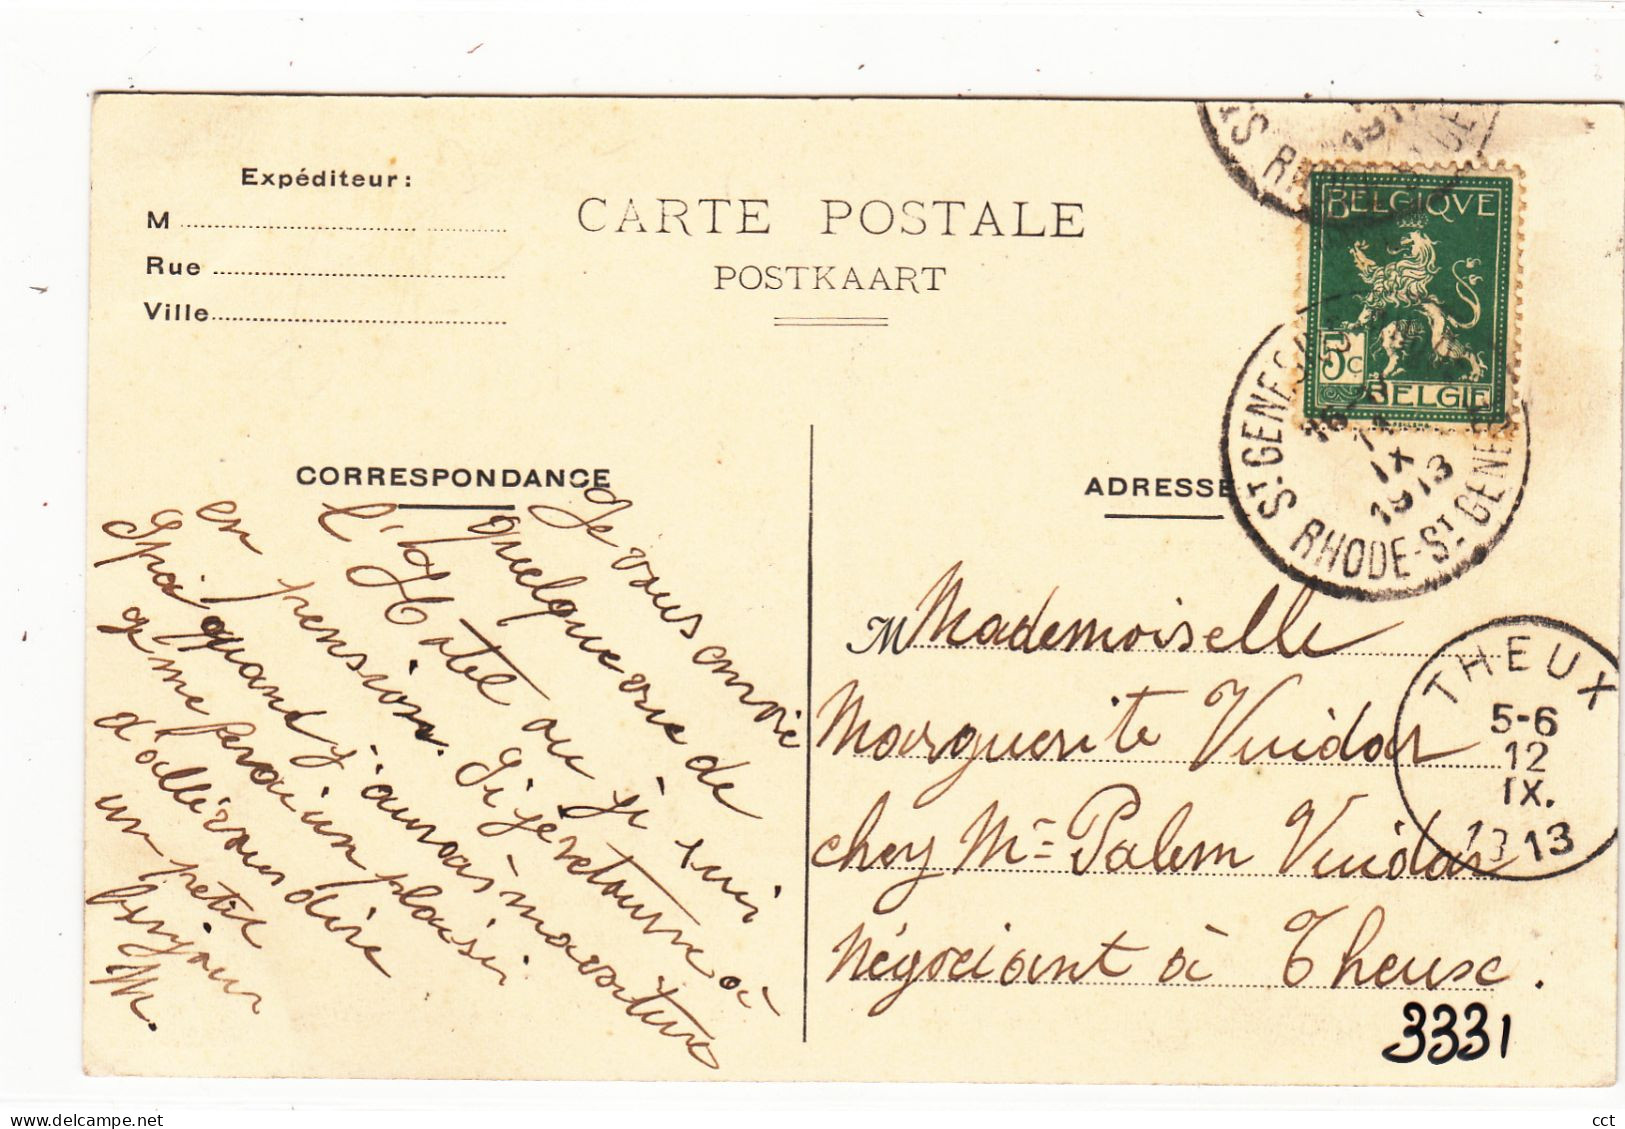 Expéditeur:
M
Rue
Ville
CARTE POSTALE
POSTKAART
BELGIQVE
5c
BELGIE
ST. GENES
RHODE-ST GENE
11
IX
1913
CORRESPONDANCE
Je vous envoie
quelque vue de
l'Hotel ou je suis
en pension. Si je retourne à
Spa quand j'aurais ma voiture
je me ferai un plaisir
d'aller vous dire
un petit
bonjour
M.
ADRESSE
M Mademoiselle
Marguerite Vuidar
chez Mr Palem Vuidar
Négociant à Theux.
THEUX
5-6
12
IX.
13 13
3331
cct